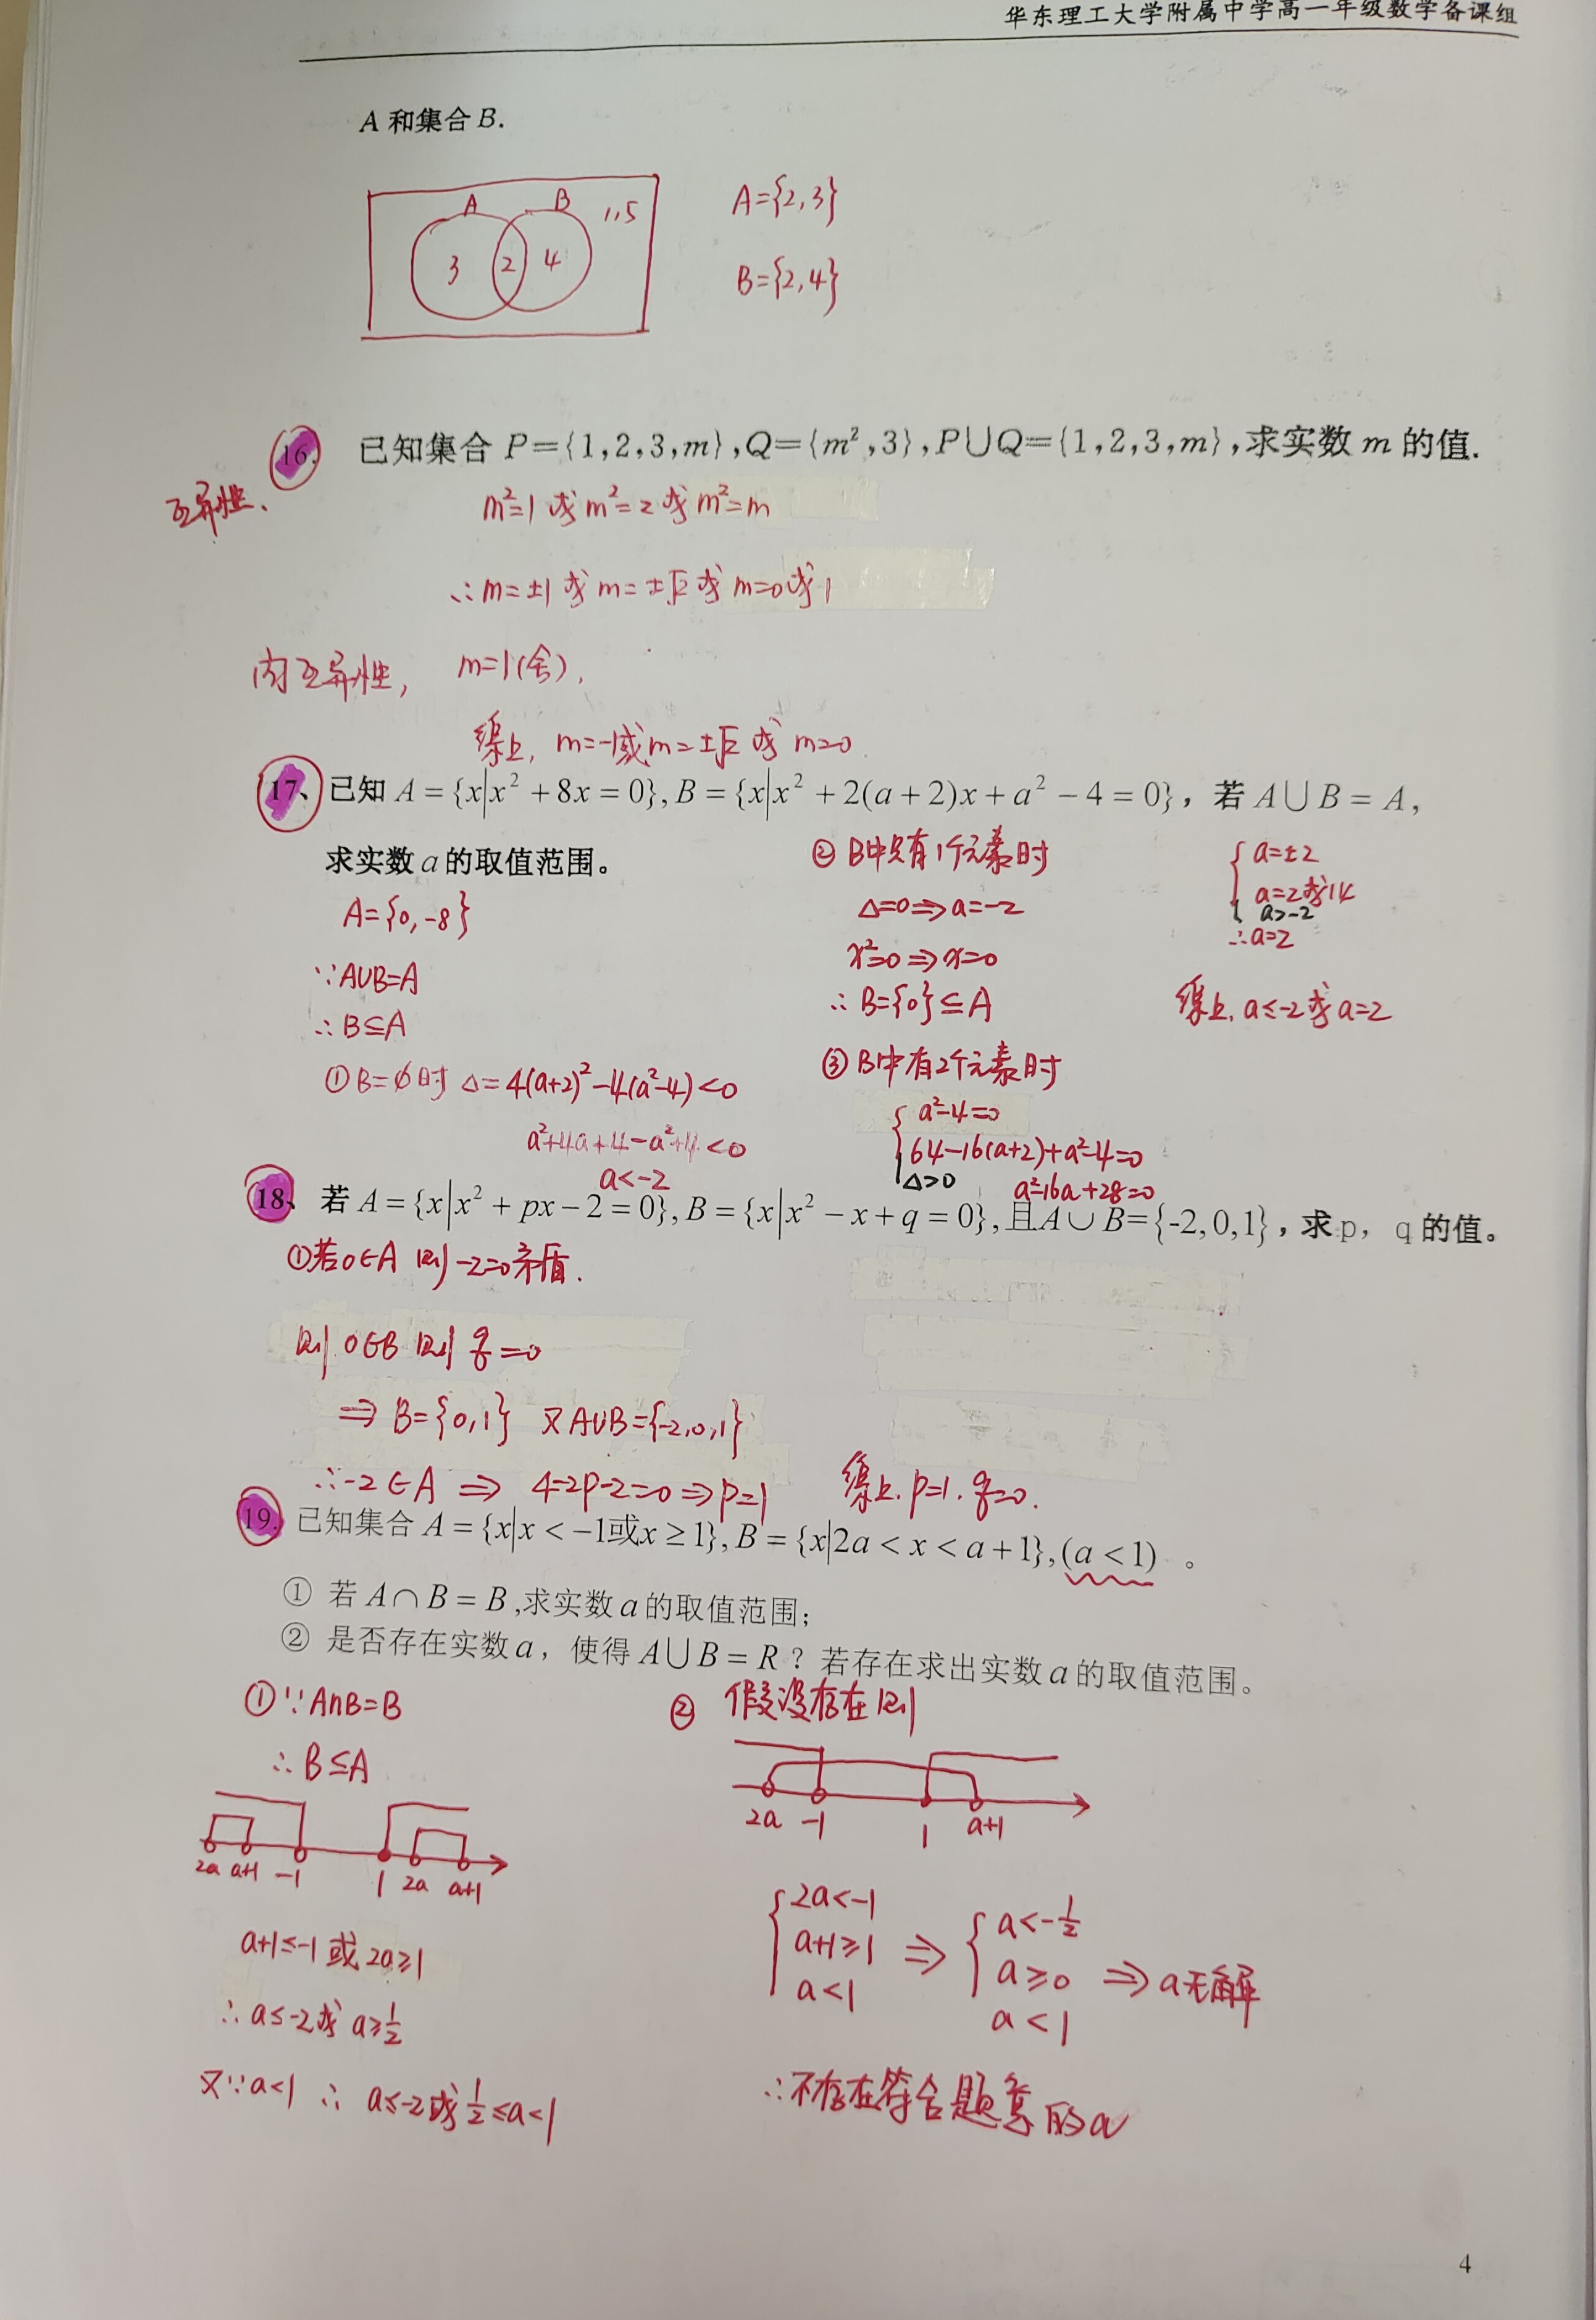 华东理工大学附属中学高一年级数学备课组
A 和集合 B.
A B 1,5
3 2 4
A={2,3}
B={2,4}
16. 已知集合 P={1,2,3,m},Q={m²,3},P∪Q={1,2,3,m},求实数 m 的值.
互异性、
m²=1 或 m²=2 或 m²=m
∴m=±1 或 m=±√2 或 m=0或1
由互异性, m=1(舍),
综上, m=-1或m=±√2 或 m=0.
17、已知 A={x|x²+8x=0},B={x|x²+2(a+2)x+a²-4=0}, 若 A∪B=A,
求实数 a 的取值范围。
A={0,-8}
∵A∪B=A
∴B⊆A
①B=∅时 Δ=4(a+2)²-4(a²-4)<0
a²+4a+4-a²+4<0
a<-2
②B中只有1个元素时
Δ=0⇒a=-2
x²=0⇒x=0
∴B={0}⊆A
③B中有2个元素时
{a²-4=0
64-16(a+2)+a²-4=0
Δ>0 a²-16a+28=0
{a=±2
a=2或14
a>-2
∴a=2
综上, a≤-2或a=2
18、若 A={x|x²+px-2=0},B={x|x²-x+q=0},且A∪B={-2,0,1},求p, q的值。
①若0∈A 则-2=0矛盾.
则 0∈B 则 q=0
⇒B={0,1} 又A∪B={-2,0,1}
∴-2∈A ⇒ 4-2p-2=0⇒p=1
综上.p=1.q=0.
19. 已知集合 A={x|x<-1或x≥1},B={x|2a<x<a+1},(a<1) 。
① 若 A∩B=B,求实数 a 的取值范围;
② 是否存在实数 a, 使得 A∪B=R? 若存在求出实数 a 的取值范围。
①∵A∩B=B
∴B⊆A
2a a+1 -1 1 2a a+1
a+1≤-1或2a≥1
∴a≤-2或a≥1/2
又∵a<1 ∴a≤-2或1/2≤a<1
② 假设存在则
2a -1 1 a+1
{2a<-1
a+1≥1
a<1
⇒{a<-1/2
a≥0
a<1
⇒a无解
∴不存在符合题意的a
4